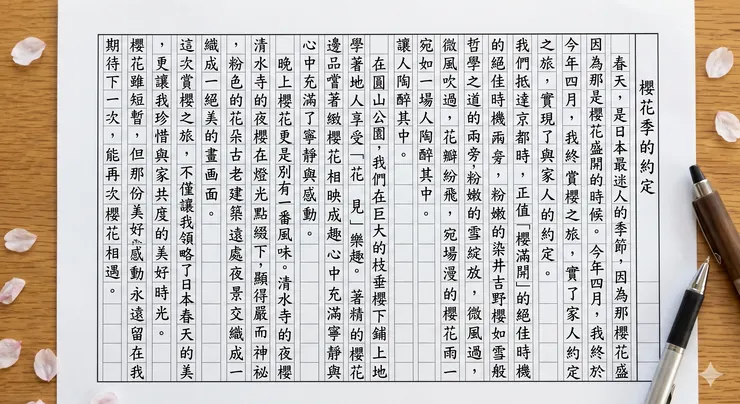 櫻花季的約定
春天，是日本最迷人的季節，因為那櫻花盛
因為那是櫻花盛開的時候。今年四月，我終於
今年四月，我終賞櫻之旅，實了家人約定
之旅，實現了與家人的約定。
我們抵達京都時，正值「櫻滿開」的絕佳時機
的絕佳時機兩旁，粉嫩的染井吉野櫻如雪般
哲學之道的兩旁，粉嫩的雪綻放，微風過，
微風吹過，花瓣紛飛，宛場漫的櫻花雨一
宛如一場人陶醉其中。
讓人陶醉其中。
在圓山公園，我們在巨大的枝垂櫻下鋪上地
學著地人享受「花見」樂趣。著精的櫻花
邊品嚐著緻櫻花相映成趣心中充滿寧靜與
心中充滿了寧靜與感動。
晚上櫻花更是別有一番風味。清水寺的夜櫻
清水寺的夜櫻在燈光點綴下，顯得嚴而神祕
，粉色的花朵古老建築遠處夜景交織成一
織成一絕美的畫畫面。
這次賞櫻之旅，不僅讓我領略了日本春天的美
，更讓我珍惜與家共度的美好時光。
櫻花雖短暫，但那份美好感動永遠留在我
期待下一次，能再次櫻花相遇。